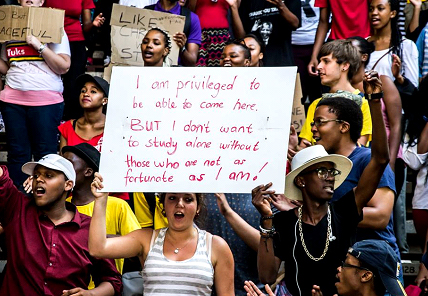 PEACEFUL
LIKE
tuks
I am privileged to
be able to come here.
BUT I don't want
to study alone without
those who are not as
fortunate as I am!